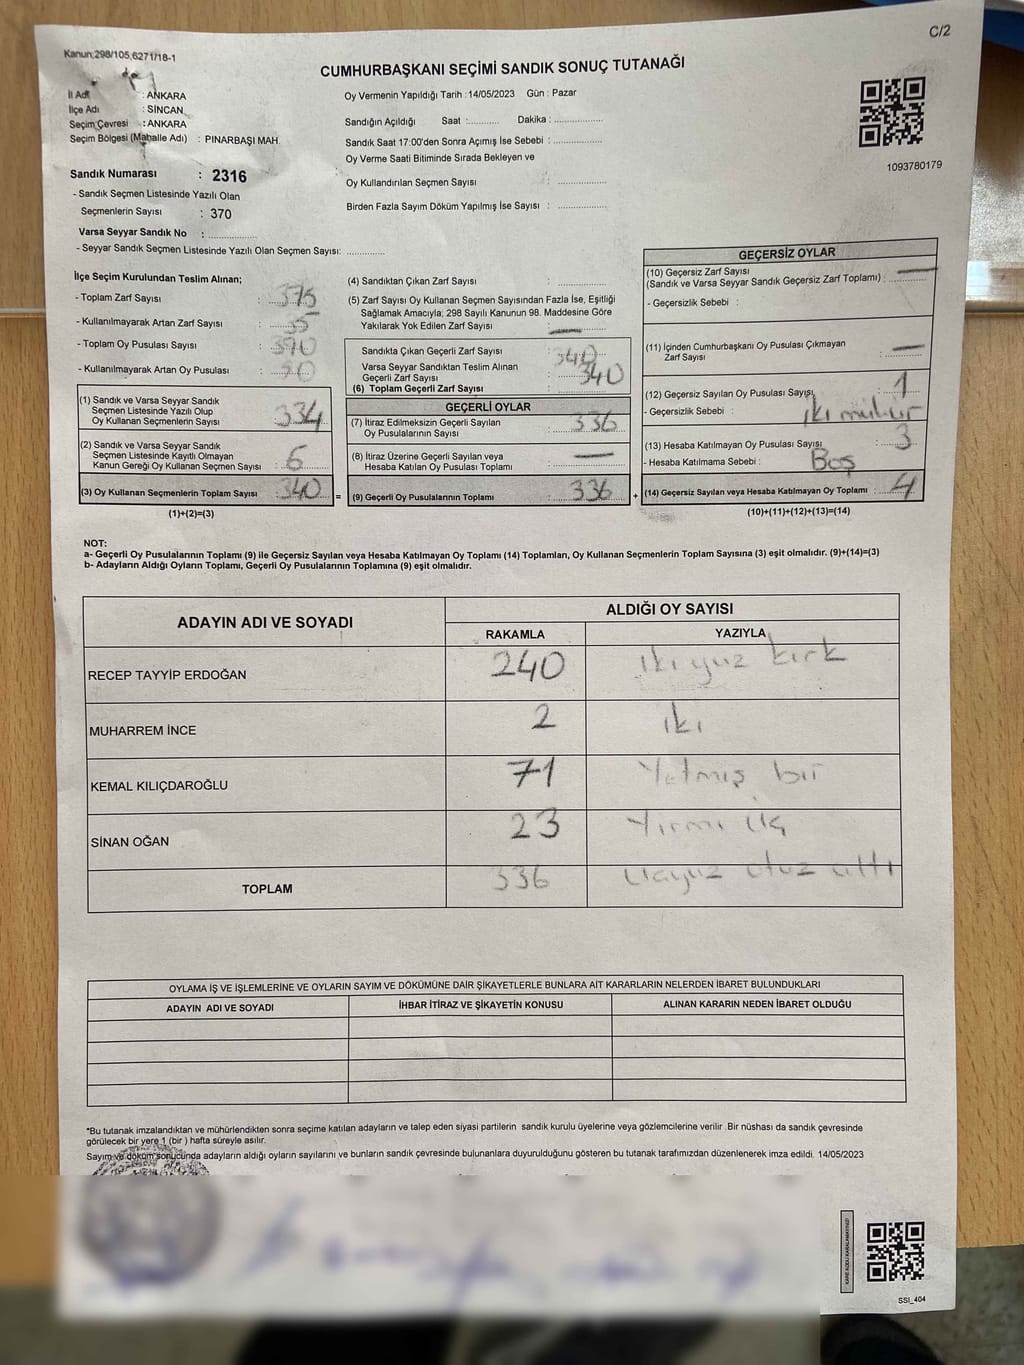 C/2
Kanun;298/105,6271/18-1
CUMHURBAŞKANI SEÇİMİ SANDIK SONUÇ TUTANAĞI
İl Adı : ANKARA
İlçe Adı : SİNCAN
Seçim Çevresi : ANKARA
Seçim Bölgesi (Mahalle Adı) : PINARBAŞI MAH.
Sandık Numarası : 2316
- Sandık Seçmen Listesinde Yazılı Olan
Seçmenlerin Sayısı : 370
Varsa Seyyar Sandık No : ................
- Seyyar Sandık Seçmen Listesinde Yazılı Olan Seçmen Sayısı: .............
Oy Vermenin Yapıldığı Tarih : 14/05/2023 Gün : Pazar
Sandığın Açıldığı Saat :........... Dakika : ................
Sandık Saat 17:00'den Sonra Açımış İse Sebebi : ................
Oy Verme Saati Bitiminde Sırada Bekleyen ve
Oy Kullandırılan Seçmen Sayısı : ................
Birden Fazla Sayım Döküm Yapılmış İse Sayısı : ................
1093780179
İlçe Seçim Kurulundan Teslim Alınan;
- Toplam Zarf Sayısı : 375
- Kullanılmayarak Artan Zarf Sayısı : 35
- Toplam Oy Pusulası Sayısı : 390
- Kullanılmayarak Artan Oy Pusulası :
(1) Sandık ve Varsa Seyyar Sandık
Seçmen Listesinde Yazılı Olup
Oy Kullanan Seçmenlerin Sayısı : 334
(2) Sandık ve Varsa Seyyar Sandık
Seçmen Listesinde Kayıtlı Olmayan
Kanun Gereği Oy Kullanan Seçmen Sayısı : 6
(3) Oy Kullanan Seçmenlerin Toplam Sayısı : 340 =
(1)+(2)=(3)
(4) Sandıktan Çıkan Zarf Sayısı : ................
(5) Zarf Sayısı Oy Kullanan Seçmen Sayısından Fazla İse, Eşitliği
Sağlamak Amacıyla; 298 Sayılı Kanunun 98. Maddesine Göre
Yakılarak Yok Edilen Zarf Sayısı : —
Sandıkta Çıkan Geçerli Zarf Sayısı : 340
Varsa Seyyar Sandıktan Teslim Alınan
Geçerli Zarf Sayısı
(6) Toplam Geçerli Zarf Sayısı : 340
GEÇERLİ OYLAR
(7) İtiraz Edilmeksizin Geçerli Sayılan
Oy Pusulalarının Sayısı : 336
(8) İtiraz Üzerine Geçerli Sayılan veya
Hesaba Katılan Oy Pusulası Toplamı : —
(9) Geçerli Oy Pusulalarının Toplamı : 336 +
GEÇERSİZ OYLAR
(10) Geçersiz Zarf Sayısı
(Sandık ve Varsa Seyyar Sandık Geçersiz Zarf Toplamı) : —
- Geçersizlik Sebebi :
(11) İçinden Cumhurbaşkanı Oy Pusulası Çıkmayan
Zarf Sayısı : —
(12) Geçersiz Sayılan Oy Pusulası Sayısı : 1
- Geçersizlik Sebebi : iki mühür
(13) Hesaba Katılmayan Oy Pusulası Sayısı : 3
- Hesaba Katılmama Sebebi : Boş
(14) Geçersiz Sayılan veya Hesaba Katılmayan Oy Toplamı : 4
(10)+(11)+(12)+(13)=(14)
NOT:
a- Geçerli Oy Pusulalarının Toplamı (9) ile Geçersiz Sayılan veya Hesaba Katılmayan Oy Toplamı (14) Toplamları, Oy Kullanan Seçmenlerin Toplam Sayısına (3) eşit olmalıdır. (9)+(14)=(3)
b- Adayların Aldığı Oyların Toplamı, Geçerli Oy Pusulalarının Toplamına (9) eşit olmalıdır.
ADAYIN ADI VE SOYADI ALDIĞI OY SAYISI
RAKAMLA YAZIYLA
RECEP TAYYİP ERDOĞAN 240 iki yüz kırk
MUHARREM İNCE 2 iki
KEMAL KILIÇDAROĞLU 71 Yetmiş bir
SİNAN OĞAN 23 Yirmi üç
TOPLAM 336 üçyüz otuz altı
OYLAMA İŞ VE İŞLEMLERİNE VE OYLARIN SAYIM VE DÖKÜMÜNE DAİR ŞİKAYETLERLE BUNLARA AİT KARARLARIN NELERDEN İBARET BULUNDUKLARI
ADAYIN ADI VE SOYADI İHBAR İTİRAZ VE ŞİKAYETİN KONUSU ALINAN KARARIN NEDEN İBARET OLDUĞU
*Bu tutanak imzalandıktan ve mühürlendikten sonra seçime katılan adayların ve talep eden siyasi partilerin sandık kurulu üyelerine veya gözlemcilerine verilir .Bir nüshası da sandık çevresinde
görülecek bir yere 1 (bir ) hafta süreyle asılır.
Sayım ve döküm sonucunda adayların aldığı oyların sayılarını ve bunların sandık çevresinde bulunanlara duyurulduğunu gösteren bu tutanak tarafımızdan düzenlenerek imza edildi. 14/05/2023
KARE KODU KARALAMAYINIZ!
SSI_404